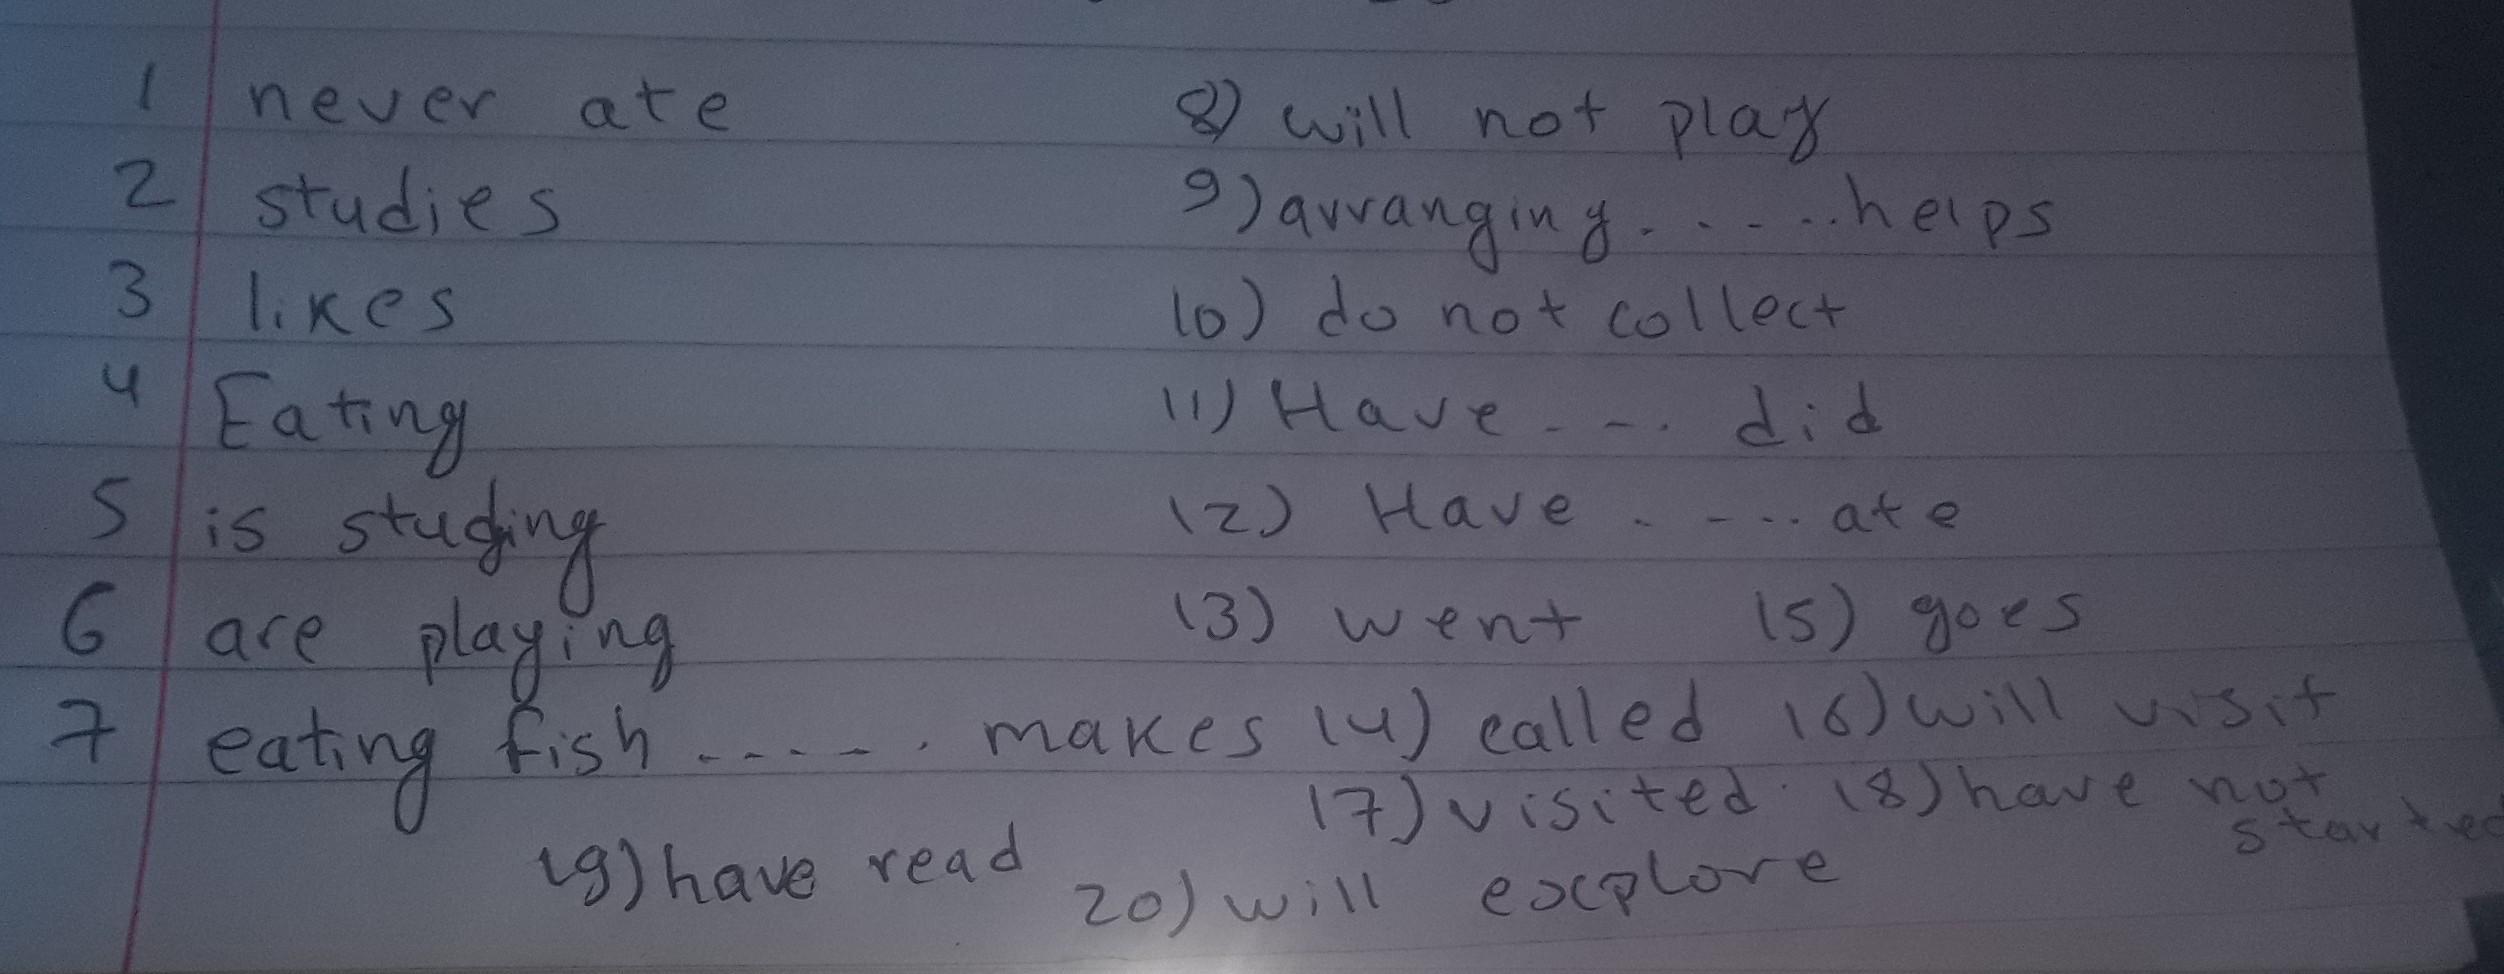 1 never ate
2 studies
3 likes
4 Eating
5 is studing
6 are playing
7 eating fish ..... makes
8) will not play
9) arranging.....helps
10) do not collect
11) Have... did
12) Have ..... ate
13) went 15) goes
14) called 16) will visit
17) visited. 18) have not
started
19) have read
20) will explore